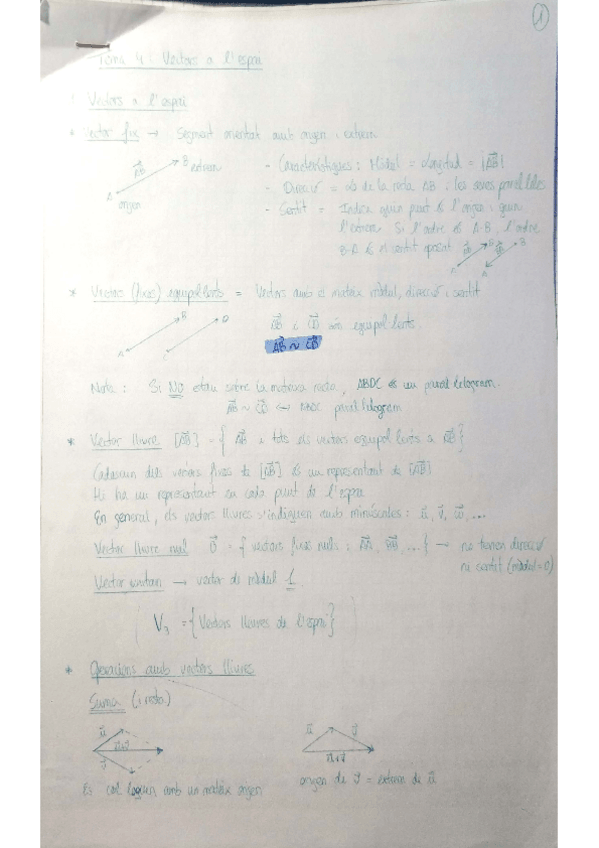 1
Tema 4: Vectors a l'espai
1 Vectors a l'espai
* Vector fix → Segment orientat amb origen i extrem
AB B extrem
A origen
- Característiques: Mòdul = longitud = |AB|
- Direcció = de la recta AB i les seves paral·leles
- Sentit = Indica quin punt és l'origen i quin
l'extrem. Si l'ordre és A-B, l'ordre
B-A és el sentit oposat
* Vectors (fixos) equipol·lents = Vectors amb el mateix mòdul, direcció i sentit
A B C D
AB i CD són equipol·lents.
AB ~ CD
Nota: Si NO estan sobre la mateixa recta, ABDC és un paral·lelogram.
AB ~ CD ↔ ABDC paral·lelogram
* Vector lliure [AB] = { AB i tots els vectors equipol·lents a AB }
Cadascun dels vectors fixos de [AB] és un representant de [AB]
Hi ha un representant en cada punt de l'espai
En general, els vectors lliures s'indiquen amb minúscules: u, v, w, ...
Vector lliure nul 0 = { vectors fixos nuls: AA, BB, ... } → no tenen direcció
ni sentit (mòdul=0)
Vector unitari → vector de mòdul 1.
V₃ = { Vectors lliures de l'espai }
* Operacions amb vectors lliures
Suma (i resta)
u u+v v
u v u+v
Es col·loquen amb un mateix origen
origen de v = extrem de u